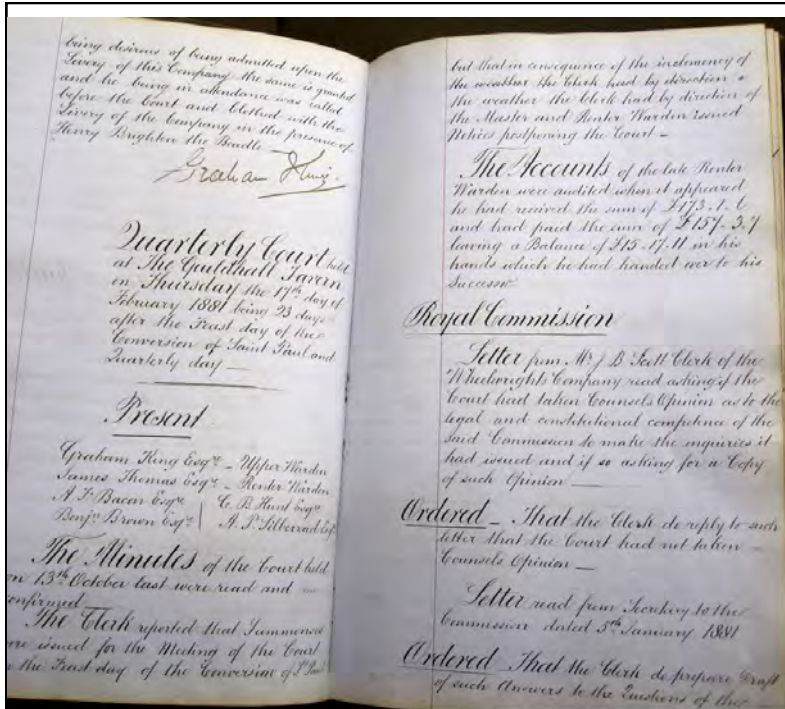 being desirous of being admitted upon the
Livery of this Company the same is granted
and he being in attendance was called
before the Court and Clothed with the
Livery of the Company in the presence of
Henry Brighton the Beadle
Graham King
Quarterly Court held
at The Guildhall Tavern
on Thursday the 17th day of
February 1881 being 23 days
after the Feast day of the
Conversion of Saint Paul and
Quarterly day —
Present
Graham King Esqre - Upper Warden
James Thomas Esqre - Renter Warden
A. F. Bacon Esqre | C. B. Hunt Esqre
Benjn Brown Esqre | A. P. Silberrad Esqre
The Minutes of the Court held
on 13th October last were read and —
confirmed
The Clerk reported that Summonses
were issued for the Meeting of the Court
on the Feast day of the Conversion of St Paul
but that in consequence of the inclemency of
the weather the Clerk had by direction o
the weather the Clerk had by direction of
the Master and Renter Warden issued
Notices postponing the Court —
The Accounts of the late Renter
Warden were audited when it appeared
he had received the sum of £173. 1. 6
and had paid the sum of £157. 3. 7
leaving a Balance of £15. 17. 11 in his
hands which he had handed over to his
Successor
Royal Commission
Letter from Mr J B Scott Clerk of the
Wheelwrights Company read asking if the
Court had taken Counsels Opinion as to the
legal and constitutional competence of the
said Commission to make the inquiries it
had issued and if so asking for a Copy
of such Opinion —
Ordered - That the Clerk do reply to such
letter that the Court had not taken —
Counsels Opinion —
Letter read from Secretary to the
Commission dated 5th January 1881
Ordered - That the Clerk do prepare Draft
of such Answers to the Questions of the —